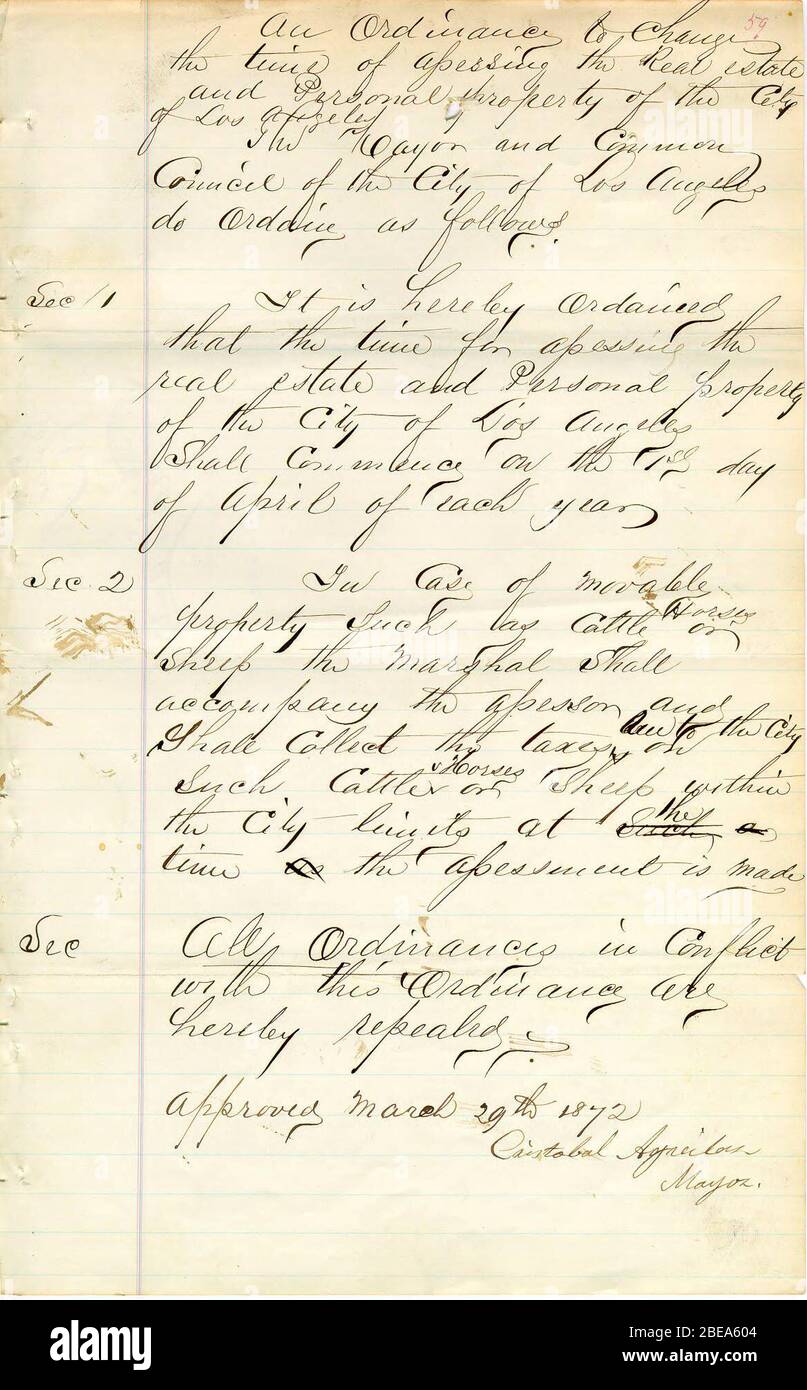 59
An Ordinance to Change
the time of assessing the Real estate
and Personal property of the City
of Los Angeles
The Mayor and Common
Council of the City of Los Angeles
do Ordain as follows
Sec 1 It is hereby Ordained
that the time for assessing the
real estate and Personal property
of the City of Los Angeles
Shall Commence on the 1st day
of April of each year
Sec 2 In Case of movable
property Such as Cattle Horses or
Sheep the Marshal Shall
accompany the assessor and
Shall Collect the taxes due to the City on
Such Cattle Horses or Sheep within
the City limits at Such a the
time as the assessment is made
Sec All Ordinances in Conflict
with this Ordinance are
hereby repealed
Approved March 29th 1872
Cristobal Aguilar
Mayor.
alamy
Image ID: 2BEA604
www.alamy.com